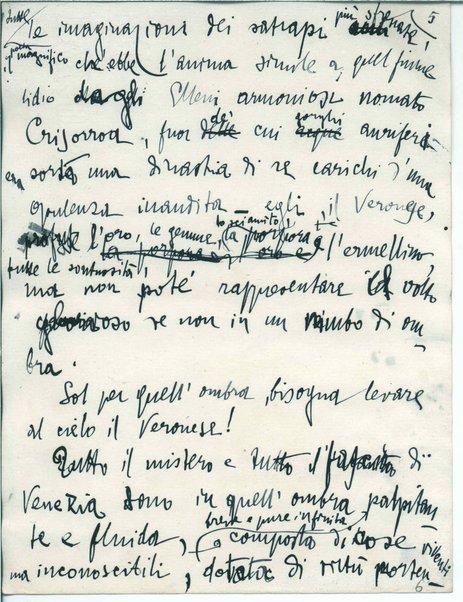 tutte
più sfrenate! 5
le imaginazioni dei satrapi
poeta
il magnifico che ebbe l'anima simile a quel fiume
lidio dagli Elleni armoniosi nomato
dai gorghi
Crisorroa, fuor cui acque auriferi
era sorta una dinastia di re carichi d'una
opulenza inaudita – egli, il Veronese,
lo sciamito,
profuse l'oro, le gemme, la porpora e l'ermellino,
la porpora oro e
tutte le sontuosità!
ma non poté rappresentare il volto
glorioso se non in un nimbo di om
bra.
Sol per quell'ombra, bisogna levare
al cielo il Veronese!
Tutto il mistero e tutto il fascino di
Venezia sono in quell'ombra palpitan
breve e pure infinita
te e fluida, composta di cose viventi
ma inconoscibili, dotata di virtù porten
6